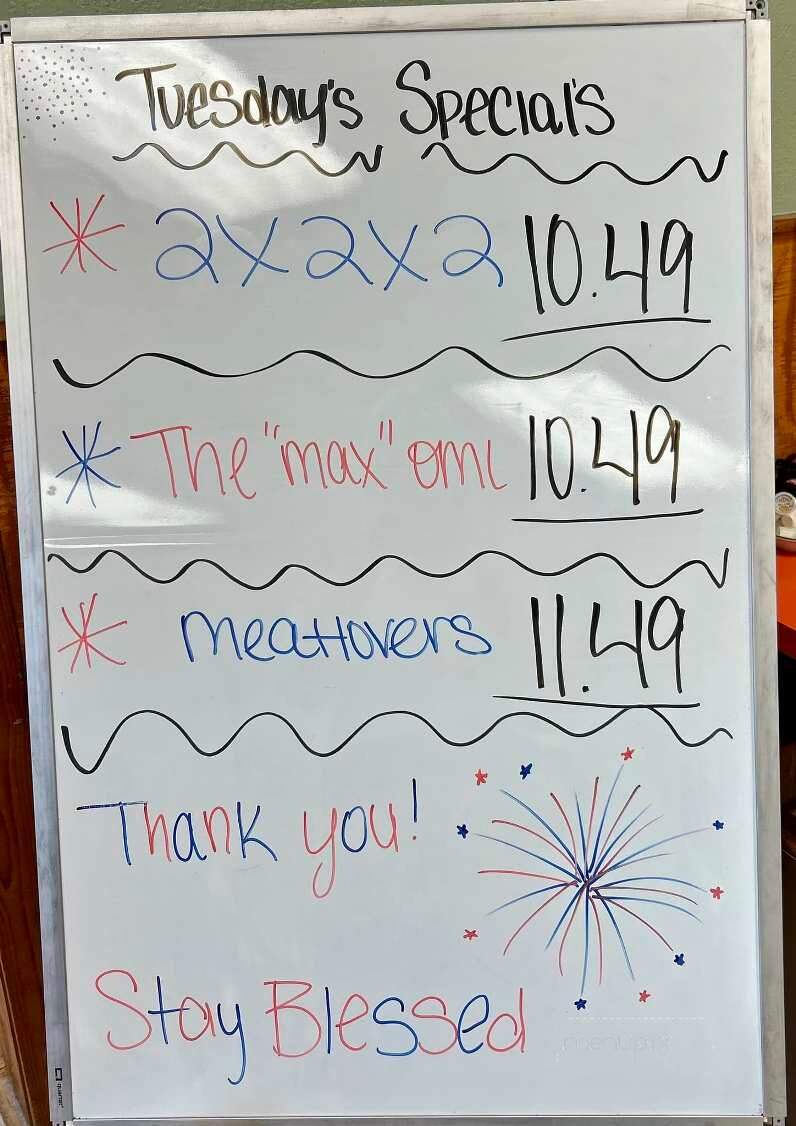 Tuesday's Special's
2x2x2 10.49
The "max" oml 10.49
meatlovers 11.49
Thank you!
Stay Blessed